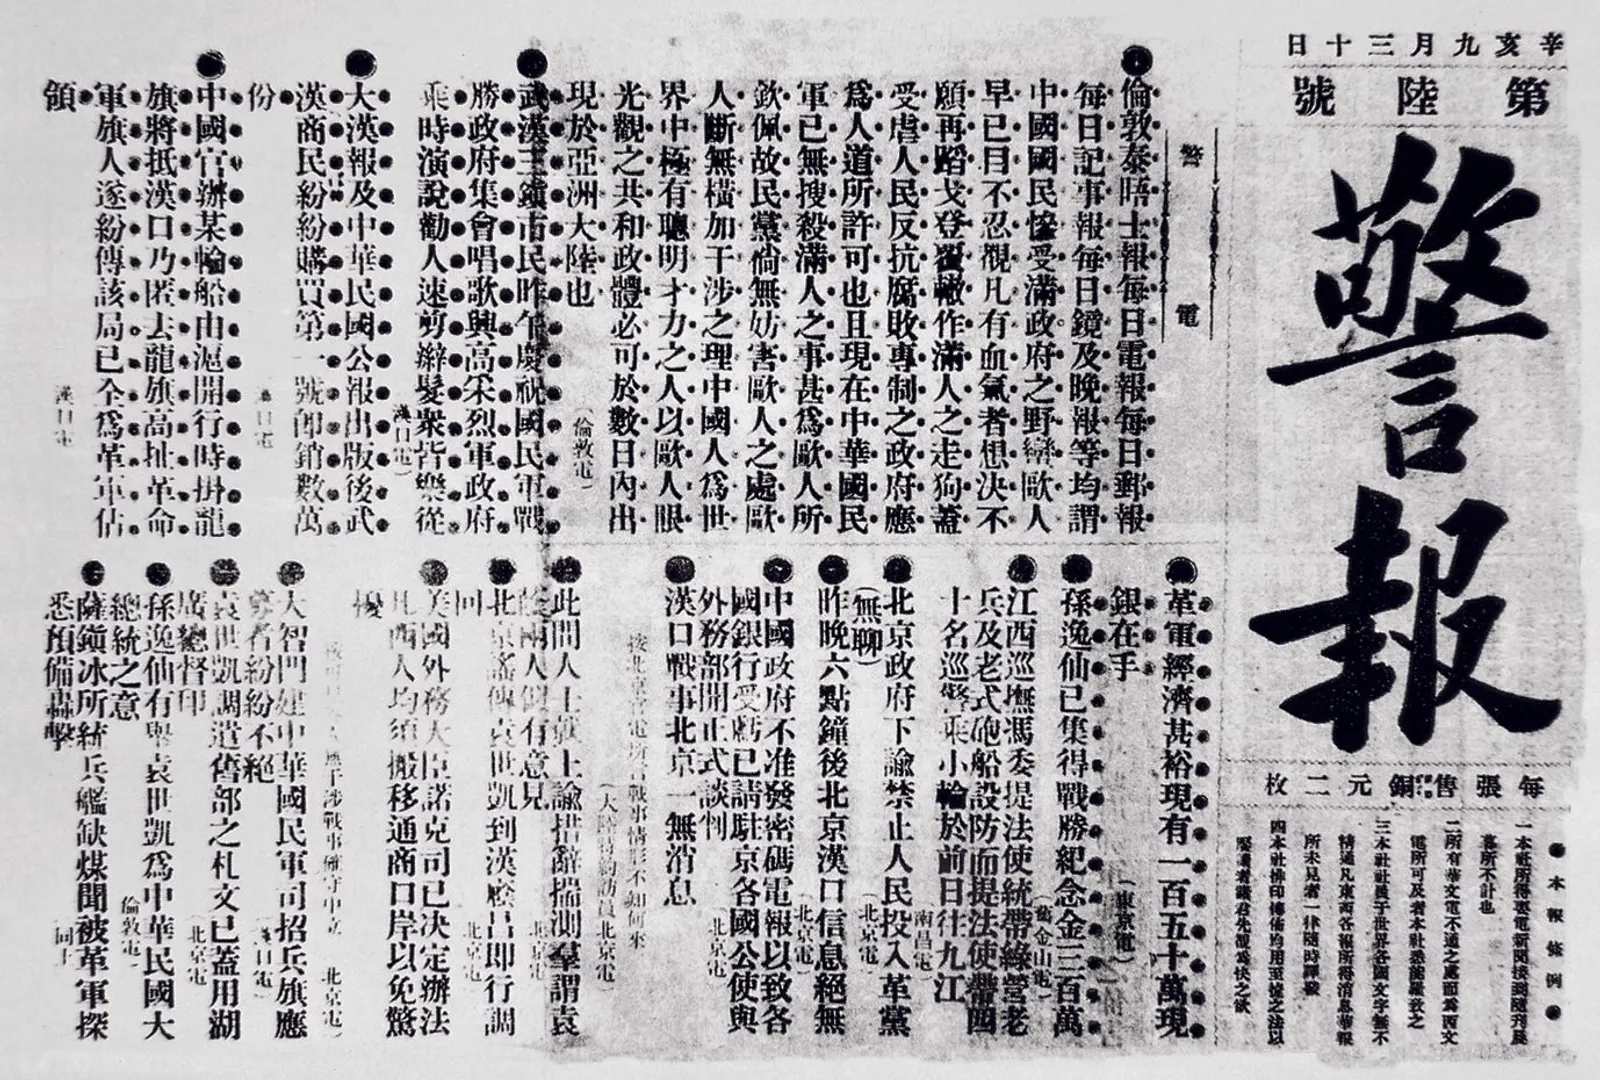 辛亥九月三十日
第陸號
警報
每張售銅元二枚
●本報條例●
一本社所得要電新聞接到隨刊晷暮所不計也
二所有華文電不通之處而爲西文
電所可及者本社悉能羅致之
三本社社員于世界各國文字無不
精通凡東西各報所得消息華報
所未見者一律隨時譯載
四本社排印傳佈均用至捷之法以
警電
●倫敦泰晤士報每日電報每日郵報
每日記事報每日鏡及晚報等均謂
中國國民慘受滿政府之野蠻歐人
早已目不忍覩凡有血氣者想決不
願再蹈戈登覆轍作滿人之走狗蓋
受虐人民反抗腐敗專制之政府應
爲人道所許可也且現在中華國民
軍已無搜殺滿人之事甚爲歐人所
欽佩故民黨倘無妨害歐人之處歐
人斷無橫加干涉之理中國人爲世
界中極有聰明才力之人以歐人眼
光觀之共和政體必可於數日內出
現於亞洲大陸也（倫敦電）
●武漢三鎮市民昨午慶祝國民軍戰
勝政府集會唱歌興高采烈軍政府
乘時演說勸人速剪辮髮衆皆樂從
（漢口電）
●大漢報及中華民國公報出版後武
漢商民紛紛購買第一號卽銷數萬
份 漢口電
●中國官辦某輪船由滬開行時掛龍
旗將抵漢口乃匿去龍旗高扯革命
軍旗人遂紛傳該局已全爲革軍佔
領 漢口電
●革軍經濟甚裕現有一百五十萬現
銀在手（東京電）
●孫逸仙已集得戰勝紀念金三百萬
（舊金山電）
●江西巡撫馮委提法使統帶綠營老
兵及老式砲船設防而提法使帶四
十名巡警乘小輪於前日往九江
南昌電
●北京政府下諭禁止人民投入革黨
（無聊）（北京電
●昨晚六點鐘後北京漢口信息絕無
（北京電）
●中國政府不准發密碼電報以致各
國銀行受虧已請駐京各國公使與
外務部開正式談判（北京電
●漢口戰事北京一無消息
按北京官電所言戰事情形不知何來
（大陸特約訪員北京電）
●此間人士就上諭措辭揣測羣謂袁
人似有意見 北京電
●北京謠傳袁世凱到漢應昌即行調
回 北京電
●美國外務大臣諾克司已決定辦法
凡西人均須搬移通商口岸以免驚
擾 北京電）
●大智門建中華國民軍司招兵旗應
募者紛紛不絕（漢口電）
●袁世凱調遣舊部之札文已蓋用湖
廣總督印（北京電
●孫逸仙有舉袁世凱爲中華民國大
總統之意 倫敦電）
●薩鎮冰所統兵艦缺煤聞被革軍探
悉預備轟擊 同上